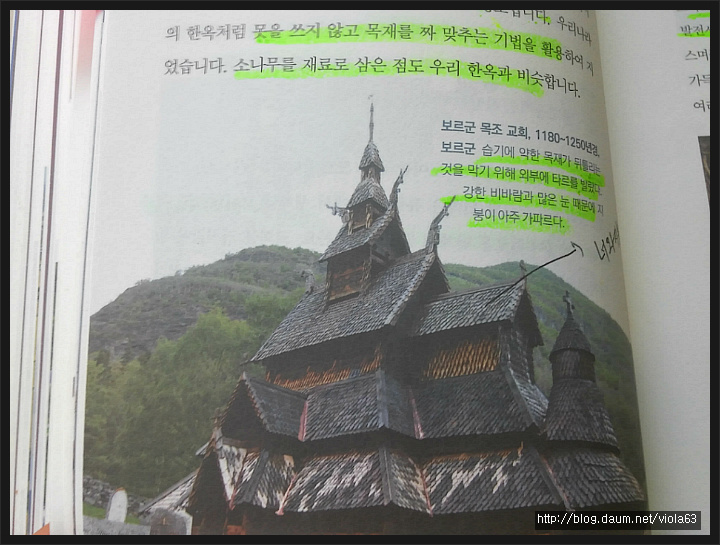 우리나라
의 한옥처럼 못을 쓰지 않고 목재를 짜 맞추는 기법을 활용하여 지
었습니다. 소나무를 재료로 삼은 점도 우리 한옥과 비슷합니다.
보르군 목조 교회, 1180~1250년경,
보르군 습기에 약한 목재가 뒤틀리는
것을 막기 위해 외부에 타르를 발랐다.
강한 비바람과 많은 눈 때문에 지
붕이 아주 가파르다.
http://blog.daum.net/viola63